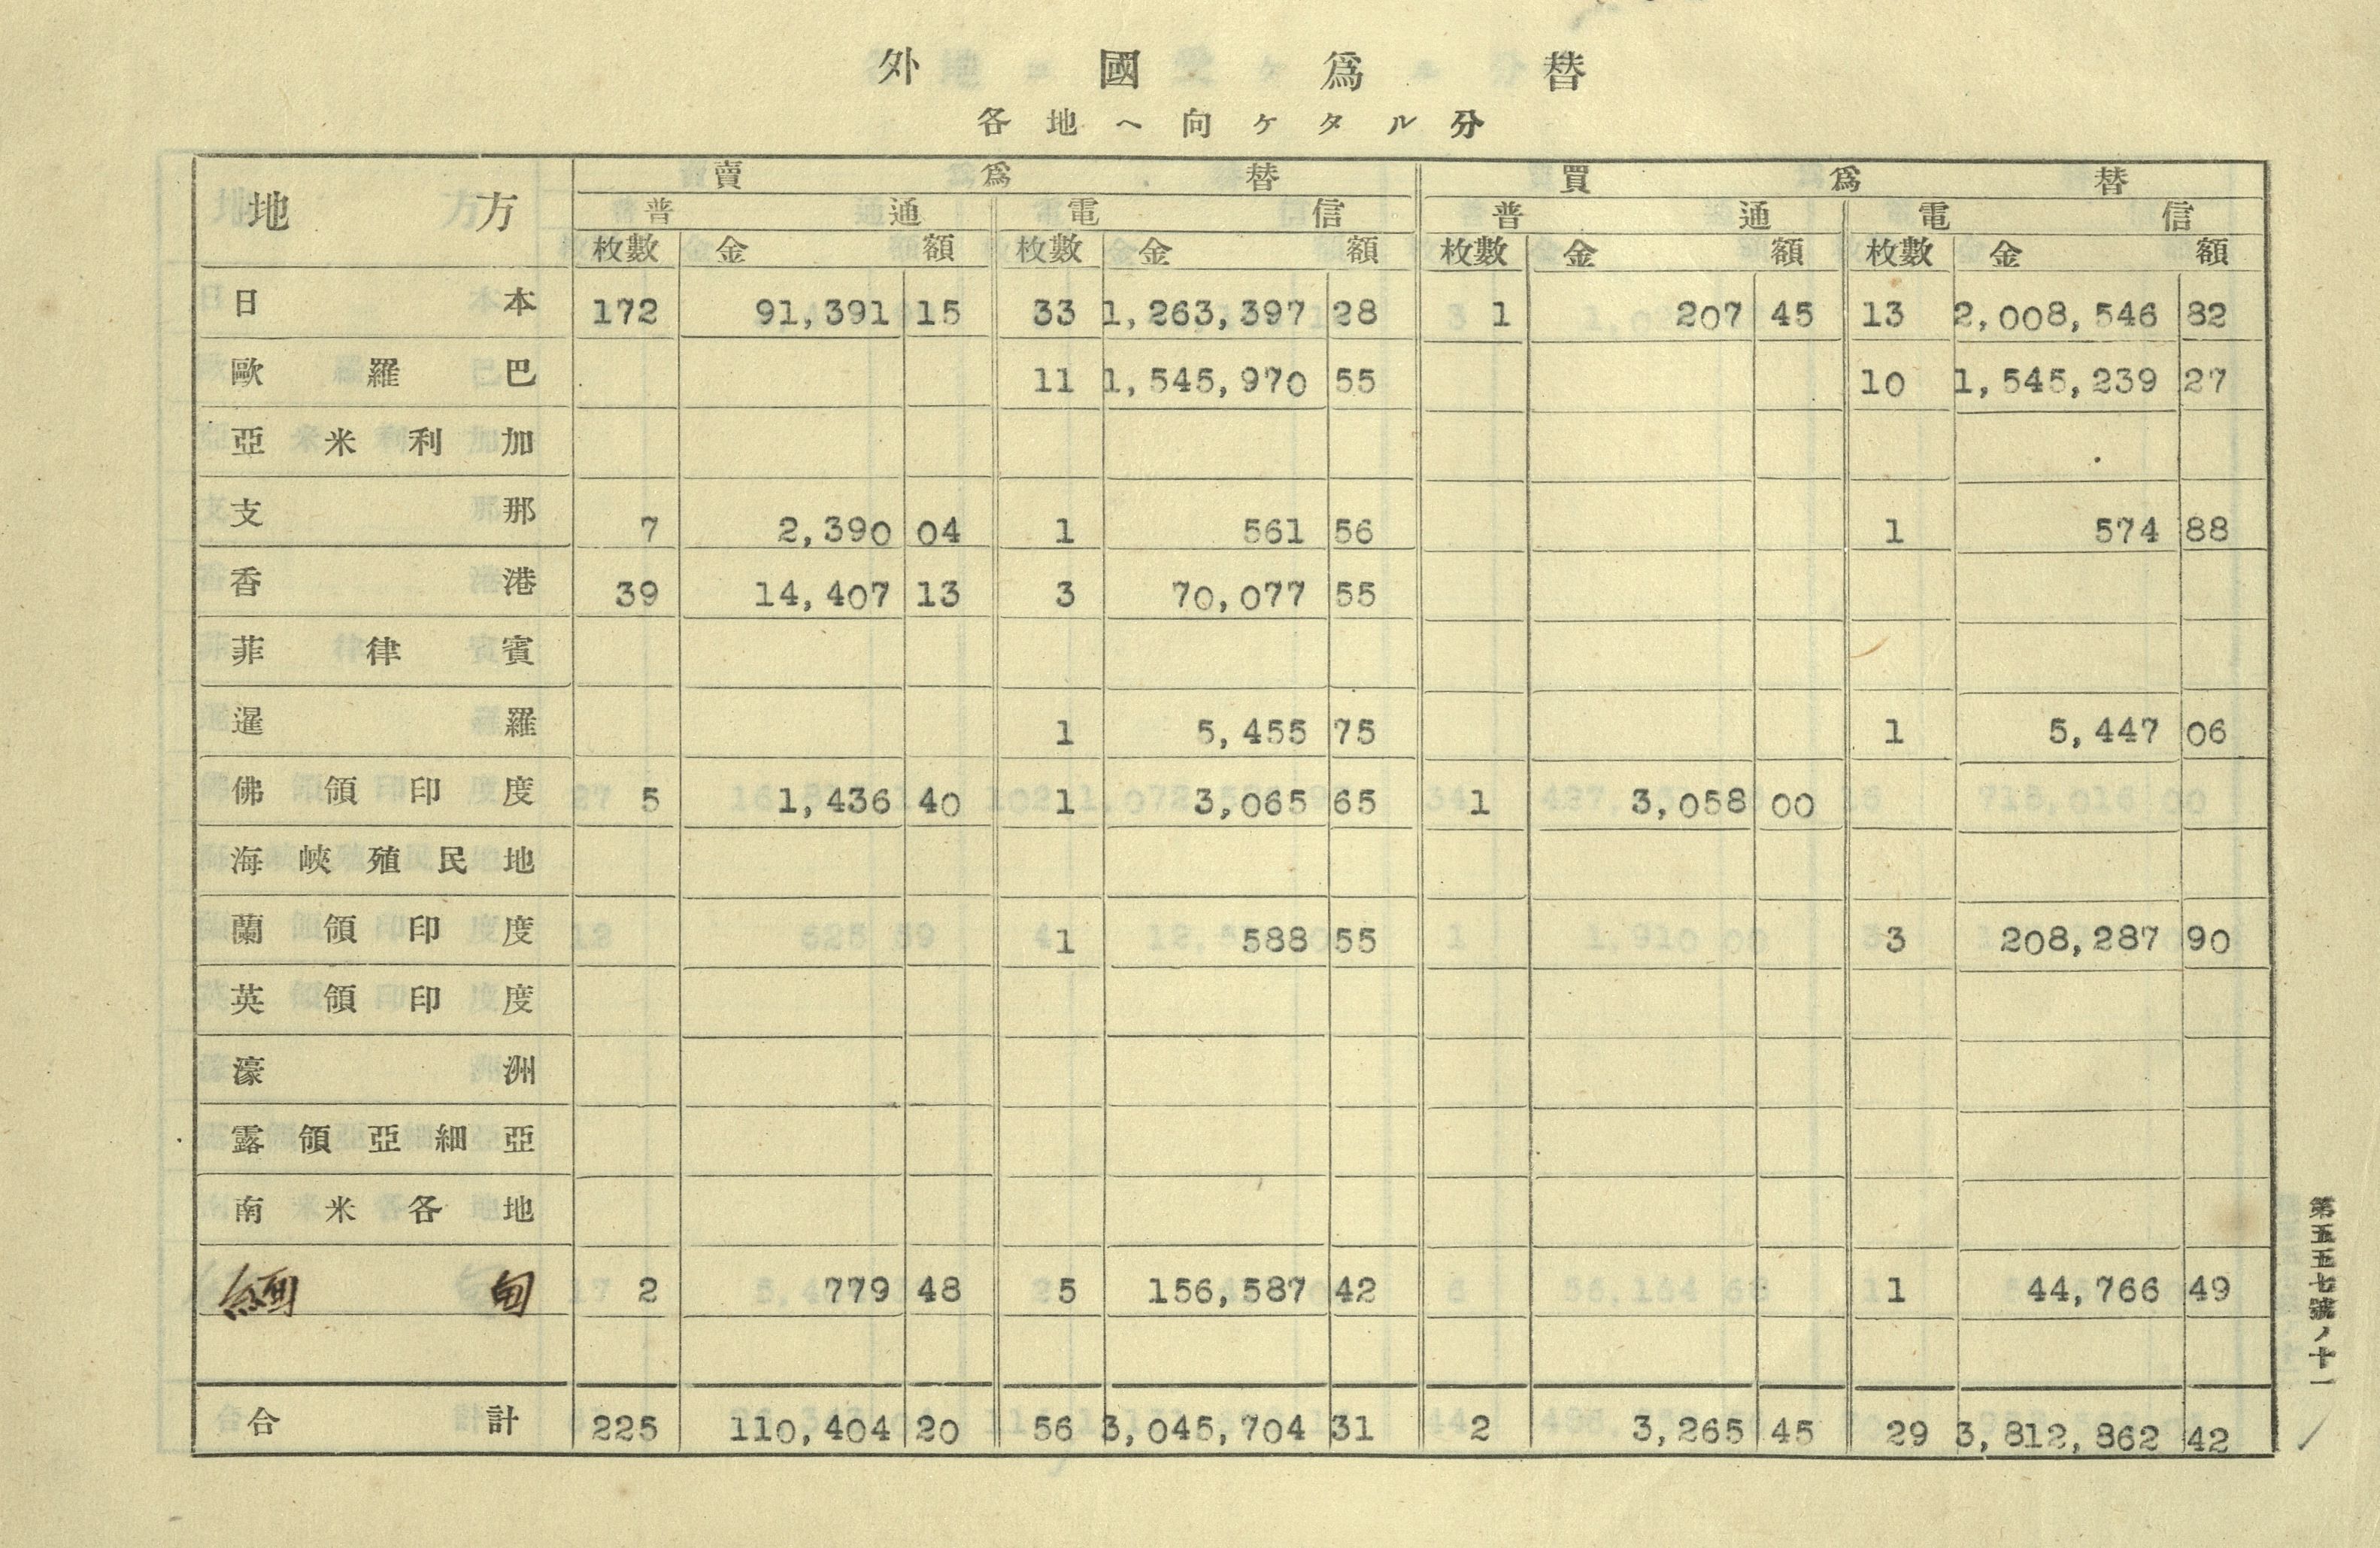 外國爲替
各地ヘ向ケタル分
地方 賣爲替 買爲替
普通 電信 普通 電信
枚數 金額 枚數 金額 枚數 金額 枚數 金額
日本 172 91,391 15 33 1,263,397 28 1 207 45 13 2,008,546 82
歐羅巴 11 1,545,970 55 10 1,545,239 27
亞米利加
支那 7 2,390 04 1 561 56 1 574 88
香港 39 14,407 13 3 70,077 55
菲律賓
暹羅 1 5,455 75 1 5,447 06
佛領印度 5 1,436 40 1 3,065 65 1 3,058 00
海峽殖民地
蘭領印度 1 588 55 3 208,287 90
英領印度
濠洲
露領亞細亞
南米各地
緬甸 2 779 48 5 156,587 42 1 44,766 49
合計 225 110,404 20 56 3,045,704 31 2 3,265 45 29 3,812,862 42
第五五七號ノ十一